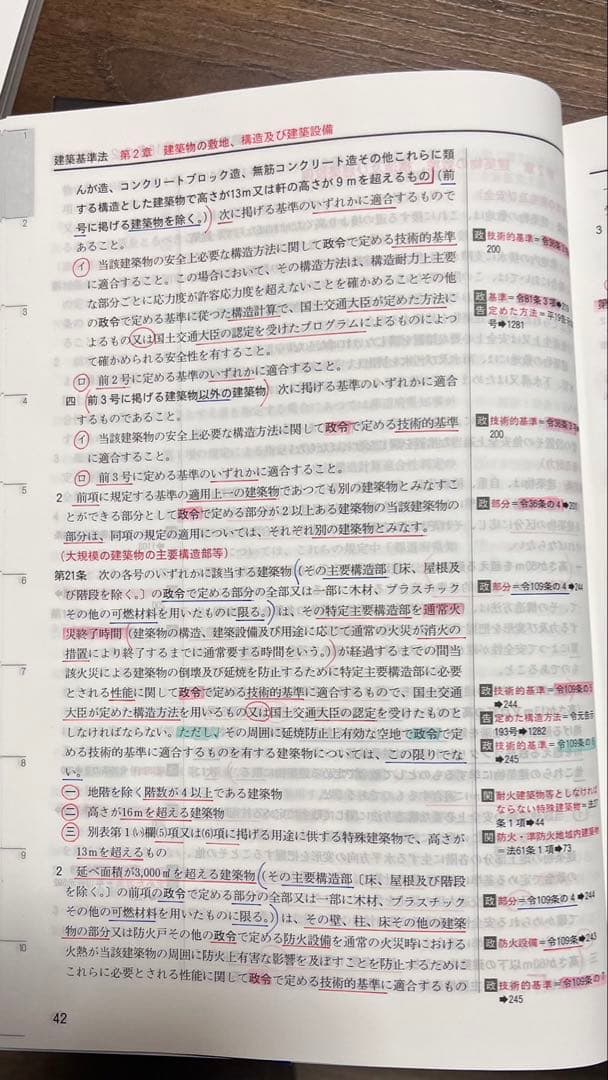 建築基準法 第2章 建築物の敷地、構造及び建築設備
んが造、コンクリートブロック造、無筋コンクリート造その他これらに類
する構造とした建築物で高さが13m又は軒の高さが9mを超えるもの(前
号に掲げる建築物を除く。) 次に掲げる基準のいずれかに適合するもので
あること。
イ 当該建築物の安全上必要な構造方法に関して政令で定める技術的基準
に適合すること。この場合において、その構造方法は、構造耐力上主要
な部分ごとに応力度が許容応力度を超えないことを確かめることその他
の政令で定める基準に従つた構造計算で、国土交通大臣が定めた方法に
よるもの又は国土交通大臣の認定を受けたプログラムによるものによつ
て確かめられる安全性を有すること。
ロ 前2号に定める基準のいずれかに適合すること。
四 前3号に掲げる建築物以外の建築物 次に掲げる基準のいずれかに適合
するものであること。
イ 当該建築物の安全上必要な構造方法に関して政令で定める技術的基準
に適合すること。
ロ 前3号に定める基準のいずれかに適合すること。
2 前項に規定する基準の適用上一の建築物であつても別の建築物とみなすこ
とができる部分として政令で定める部分が2以上ある建築物の当該建築物の
部分は、同項の規定の適用については、それぞれ別の建築物とみなす。
(大規模の建築物の主要構造部等)
第21条 次の各号のいずれかに該当する建築物(その主要構造部〔床、屋根及
び階段を除く。〕の政令で定める部分の全部又は一部に木材、プラスチック
その他の可燃材料を用いたものに限る。)は、その特定主要構造部を通常火
災終了時間(建築物の構造、建築設備及び用途に応じて通常の火災が消火の
措置により終了するまでに通常要する時間をいう。)が経過するまでの間当
該火災による建築物の倒壊及び延焼を防止するために特定主要構造部に必要
とされる性能に関して政令で定める技術的基準に適合するもので、国土交通
大臣が定めた構造方法を用いるもの又は国土交通大臣の認定を受けたものと
しなければならない。ただし、その周囲に延焼防止上有効な空地で政令で定
める技術的基準に適合するものを有する建築物については、この限りでな
い。
一 地階を除く階数が4以上である建築物
二 高さが16mを超える建築物
三 別表第1(い)欄(5)項又は(6)項に掲げる用途に供する特殊建築物で、高さが
13mを超えるもの
2 延べ面積が3,000㎡を超える建築物(その主要構造部〔床、屋根及び階段
を除く。〕の前項の政令で定める部分の全部又は一部に木材、プラスチック
その他の可燃材料を用いたものに限る。)は、その壁、柱、床その他の建築
物の部分又は防火戸その他の政令で定める防火設備を通常の火災時における
火熱が当該建築物の周囲に防火上有害な影響を及ぼすことを防止するために
これらに必要とされる性能に関して政令で定める技術的基準に適合するもの
42
政 技術的基準=令36条3項
200
政 基準=令81条3項
告 定めた方法=平19告
号➡1281
政 技術的基準=令36条3項
200
政 部分=令36条の4➡
政 部分=令109条の4➡244
政 技術的基準=令109条の5
➡244
告 定めた構造方法=令元告示
193号➡1282
政 技術的基準=令109条の6
➡245
関 耐火建築物等としなければ
ならない特殊建築物=法27
条1項➡44
関 防火・準防火地域内建築物
=法61条1項➡73
政 部分=令109条の4➡244
政 防火設備=令109条➡243
政 技術的基準=令109条の
➡245
1
2
3
4
5
6
7
8
9
10
3